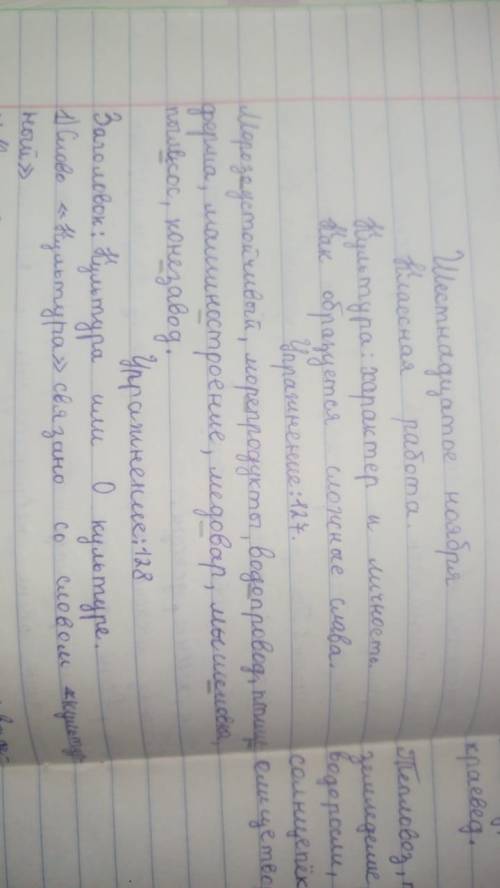 Шестнадцатое ноября
Классная работа.
Культура: характер и личность
Как образуется сложные слова.
Упражнение: 127.
Морозоустойчивый, морепродукты, водопровод, птице
ферма, машиностроение, медовар, мышеловка,
пылесос, конезавод.
Упражнение: 128
Заголовок: Культура или О культуре.
1) Слово «Культура» связано со словом «культур
ной»
краевед.
Тепловоз,
земледелие
водоросли,
солнцепёк